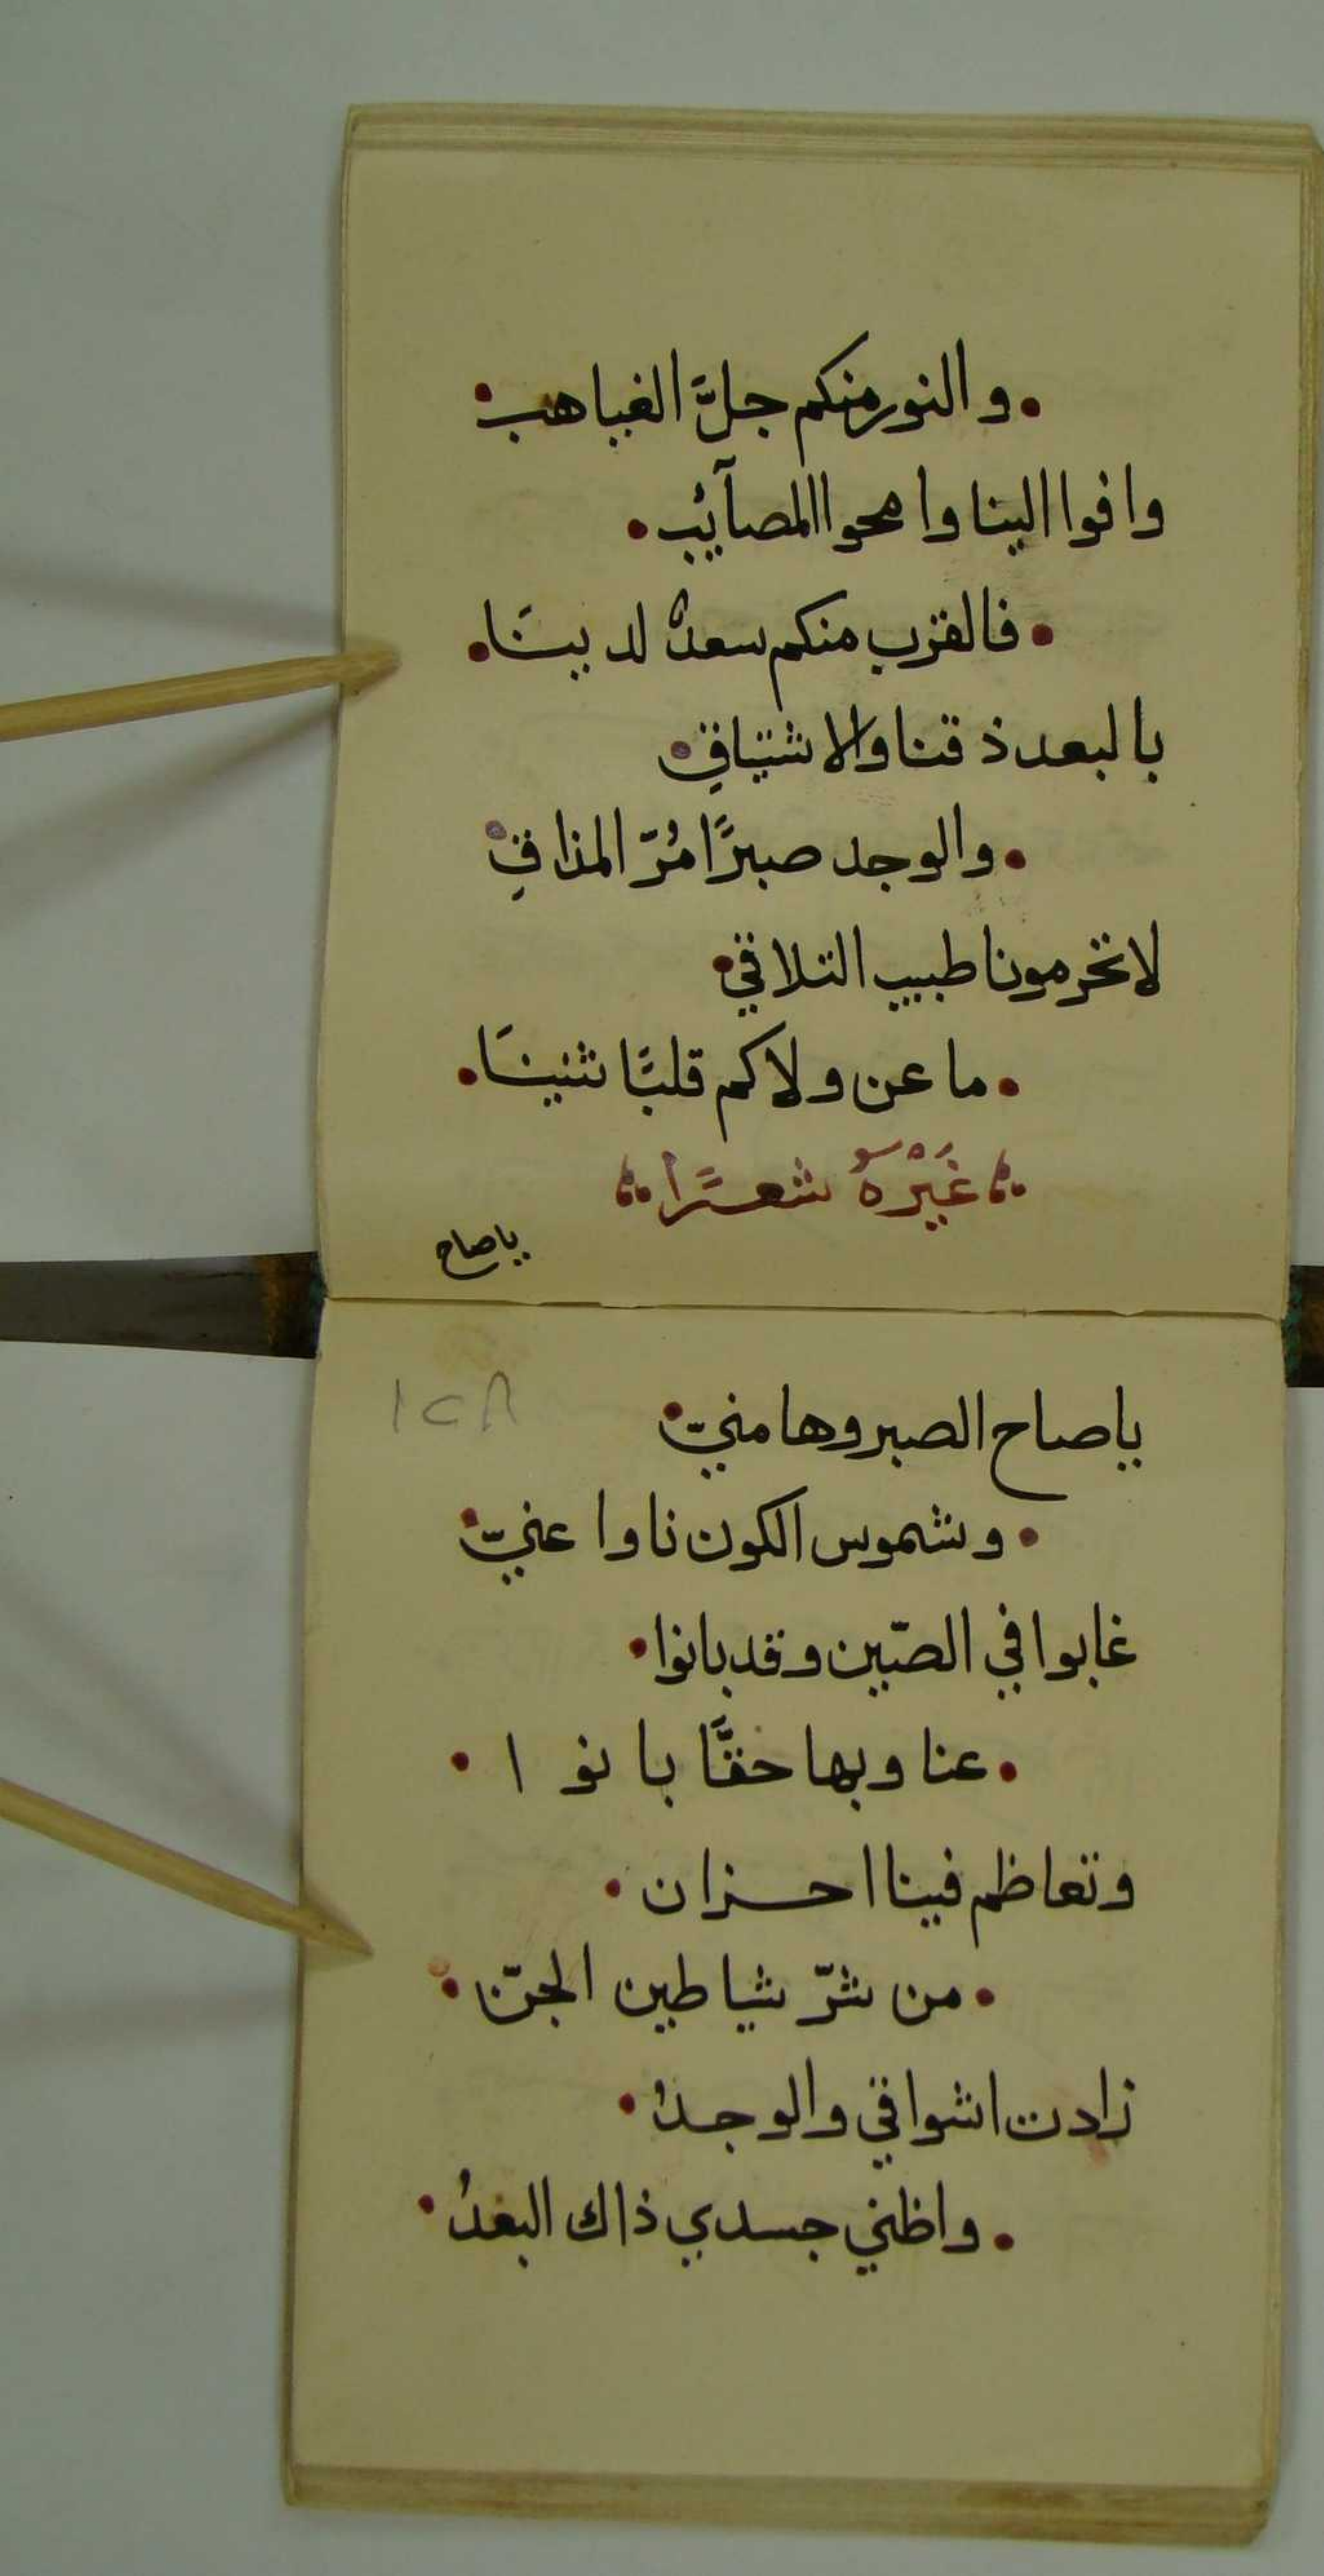 والنور منكم جلَّ الغياهب
وافوا الينا وامحوا المصآئب
فالقرب منكم سعدٌ لدينَا
بالبعد ذقنا والاشتياقِ
والوجد صبرًا مُرّ المذاقِ
لا تحرمونا طبيب التلاقي
ما عن ولاكم قلبًا ثنينَا
غَيْرُهُ شعرًا
ياصاح
ياصاح الصبر وها منيّ
وشموس الكون ناوا عنيّ
غابوا في الصّين وقد بانوا
عنا وبها حقًّا بانوا
وتعاظم فينا احزان
من شرّ شياطين الجنّ
زادت اشواقي والوجدُ
واظني جسدي ذاك البعدُ
١٢٨